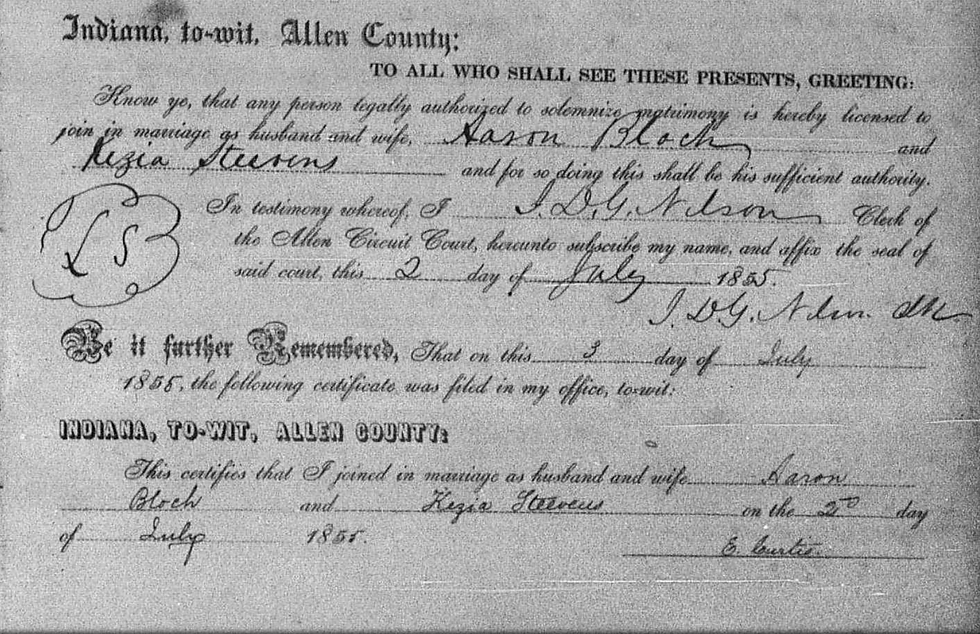 Indiana, to-wit, Allen County:
TO ALL WHO SHALL SEE THESE PRESENTS, GREETING:
Know ye, that any person legally authorized to solemnize matrimony is hereby licensed to
join in marriage as husband and wife, Aaron Bloch and
Kezia Steevens and for so doing this shall be his sufficient authority.
In testimony whereof, I I. D. G. Nelson Clerk of
the Allen Circuit Court, hereunto subscribe my name, and affix the seal of
L S
said court, this 2 day of July 1855.
I. D. G. Nelson Clk
Be it further Remembered, That on this 3 day of July
1855, the following certificate was filed in my office, to-wit:
INDIANA, TO-WIT, ALLEN COUNTY:
This certifies that I joined in marriage as husband and wife Aaron
Bloch and Kezia Steevens on the 2d day
of July 1855.
E. Curtis